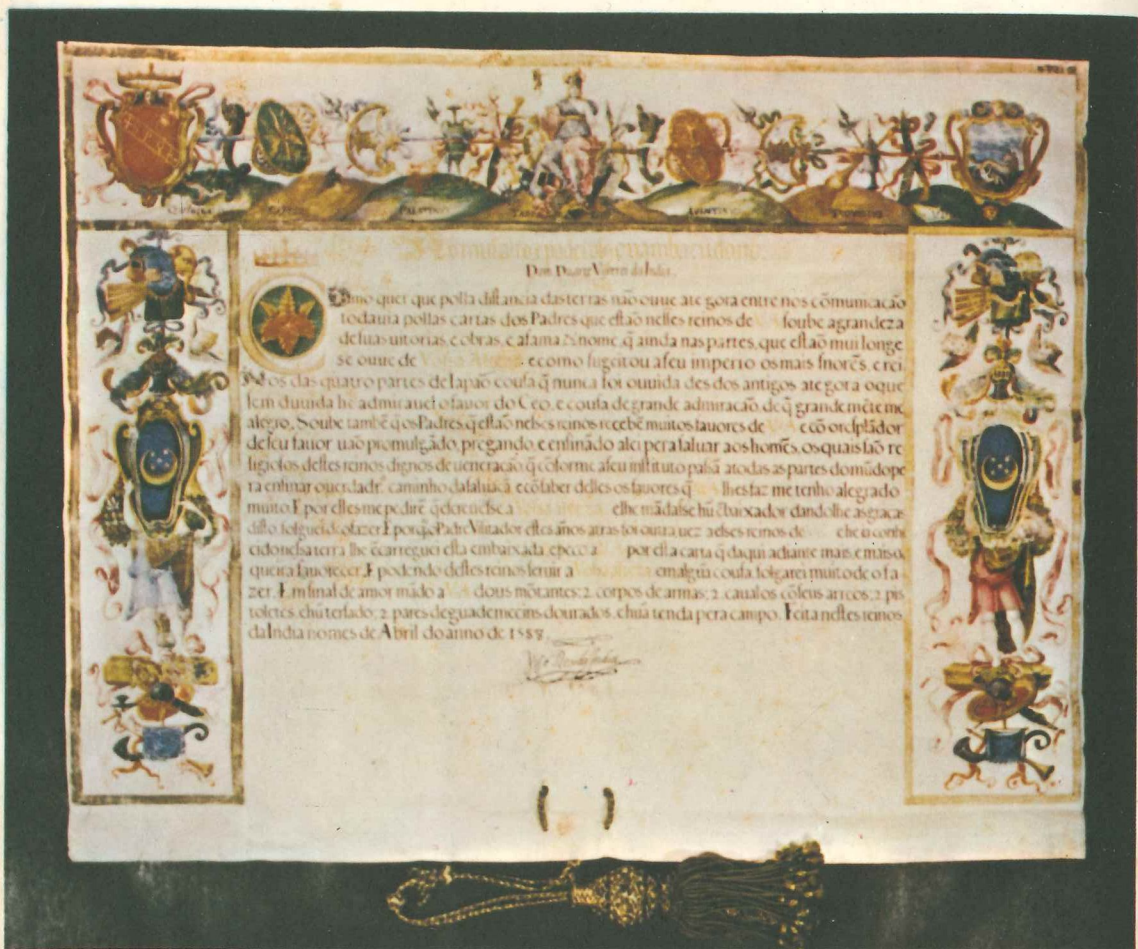 SPQR
PALATINO
Ao muito alto e poderoso quambacudono
Dom Duarte Visorei da India.
Como quer que polla distancia das terras não ouue ate gora entre nos cõmunicacão
todauia pollas cartas dos Padres que estão nesses reinos de VA soube a grandeza
de suas uitorias, e obras, e a fama & nome, q̃ ainda nas partes, que estão mui longe
se ouue de Vossa Alteza. e como sugeitou a seu imperio os mais snorẽs, e rei
Nos das quatro partes de Iapão cousa q̃ nunca foi ouuida des dos antigos ate gora o que
sem duuida he admirauel o fauor do Ceo, e cousa de grande admiracão, de q̃ grande mẽte me
alegro. Soube tambẽ q̃ os Padres q̃ estão nesses reinos recebẽ muitos fauores de VA e cõ o resplãdor
de seu fauor uão promulgãdo, pregando, e ensinãdo a lei pera saluar aos homẽs, os quais são re
ligiosos destes reinos dignos de ueneracão, q̃ cõforme a seu instituto passã a todas as partes do mũdo pe
ra ensinar o uerdadrº. caminho da saluacã, e cõ saber delles os fauores q̃ VA lhes faz me tenho alegrado
muito. E por elles me pedirẽ q̃ escreuesse a Vossa Alteza e lhe mãdasse hũ ẽbaixador dandolhe as gracas
disto folguei de o fazer. E porq̃ o Padre Visitador estes años atras foi outra uez a esses reinos de VA e he ia conhe
cido nessa terra lhe ẽcarreguei esta embaixada, e peco a VA por esta carta q̃ daqui adiante mais, e mais o,
queira fauorecer. E podendo destes reinos seruir a Vossa Alteza em algũa cousa, folgarei muito de o fa
zer. Em sinal de amor mãdo a VA dous mõtantes; 2 corpos de armas; 2. caualos cõ seus arreos; 2 pis
toletes, e hũ tersado; 2 pares de guademecins dourados, e hũa tenda pera campo. Feita nestes reinos
da India no mes de Abril do anno de 1588.